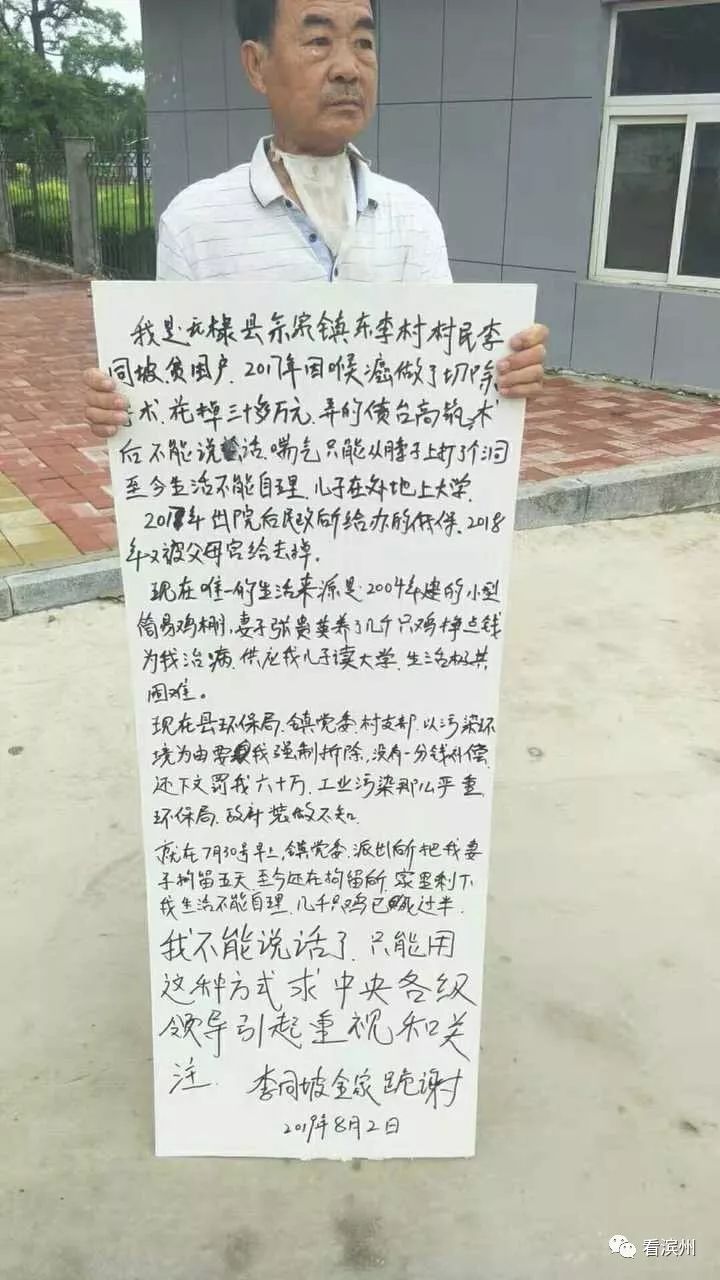 我是无棣县佘家镇东李村村民李
同坡.贫困户.2017年因喉癌做了切除
手术.花掉三十多万元.弄的债台高筑.术
后不能说话.喘气只能从脖子上打了个洞
至今生活不能自理.儿子在外地上大学.
2017年出院后民政所给办的低保.2018
年又被父母官给去掉.
现在唯一的生活来源是2004年建的小型
简易鸡棚.妻子张贵英养了几千只鸡挣点钱
为我治病.供应我儿子读大学.生活极其
困难。
现在县环保局.镇党委.村支部.以污染环
境为由要我强制拆除,没有一分钱补偿.
还下文罚我六十万.工业污染那么严重.
环保局.政府装做不知.
就在7月30号早上.镇党委.派出所把我妻
子拘留五天.至今还在拘留所.家里剩下
我生活不能自理.几千只鸡已死过半.
我不能说话了.只能用
这种方式求中央各级
领导引起重视和关
注. 李同坡全家跪谢
2019年8月2日
看滨州